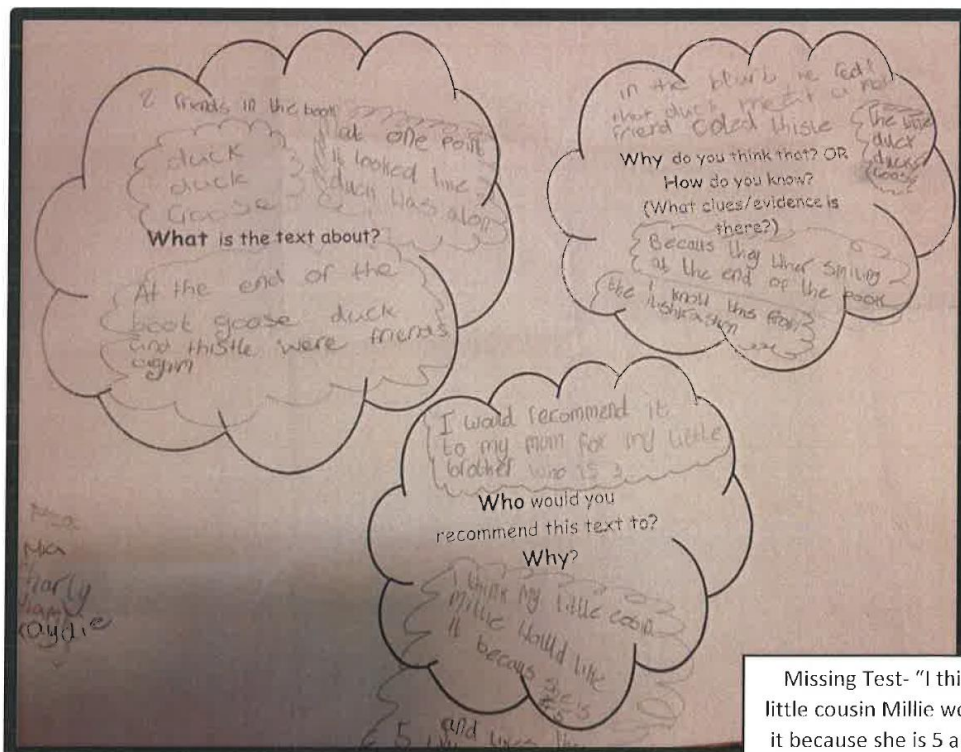 2 friends in the book
duck
duck
Goose
at one point
it looked like
duck was alon
What is the text about?
At the end of the
book goose duck
and thistle were friends
agin
in the blurb we red
that duck meat a new
friend coled thisle
the little
duck
duck
Goose
Why do you think that? OR
How do you know?
(What clues/evidence is
there?)
Becaus they wher smiling
at the end of the book
I know this from
the
I would recommend it
to my mum for my little
brother who is 3
Who would you
recommend this text to?
Why?
I think my little cosin
Millie would like
it becaus she is
5 and likes
Mia
harly
Kaydie
Missing Test- "I thi
little cousin Millie wo
it because she is 5 a